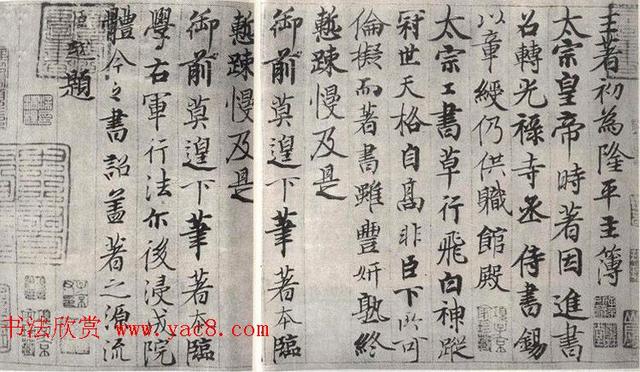 王著初為隆平主簿
太宗皇帝時著因進書
召轉光祿寺丞侍書錫
以章綬仍供職館殿
太宗工書草行飛白神蹤
冠世天格自高非臣下所可
倫擬而著書雖豐妍熟終
慙疎慢及是
御前莫遑下筆著本臨
慙疎慢及是
御前莫遑下筆著本臨
學右軍行法尔後浸成院
體今之書詔蓋著之源流
題
书法欣赏 www.yac8.com